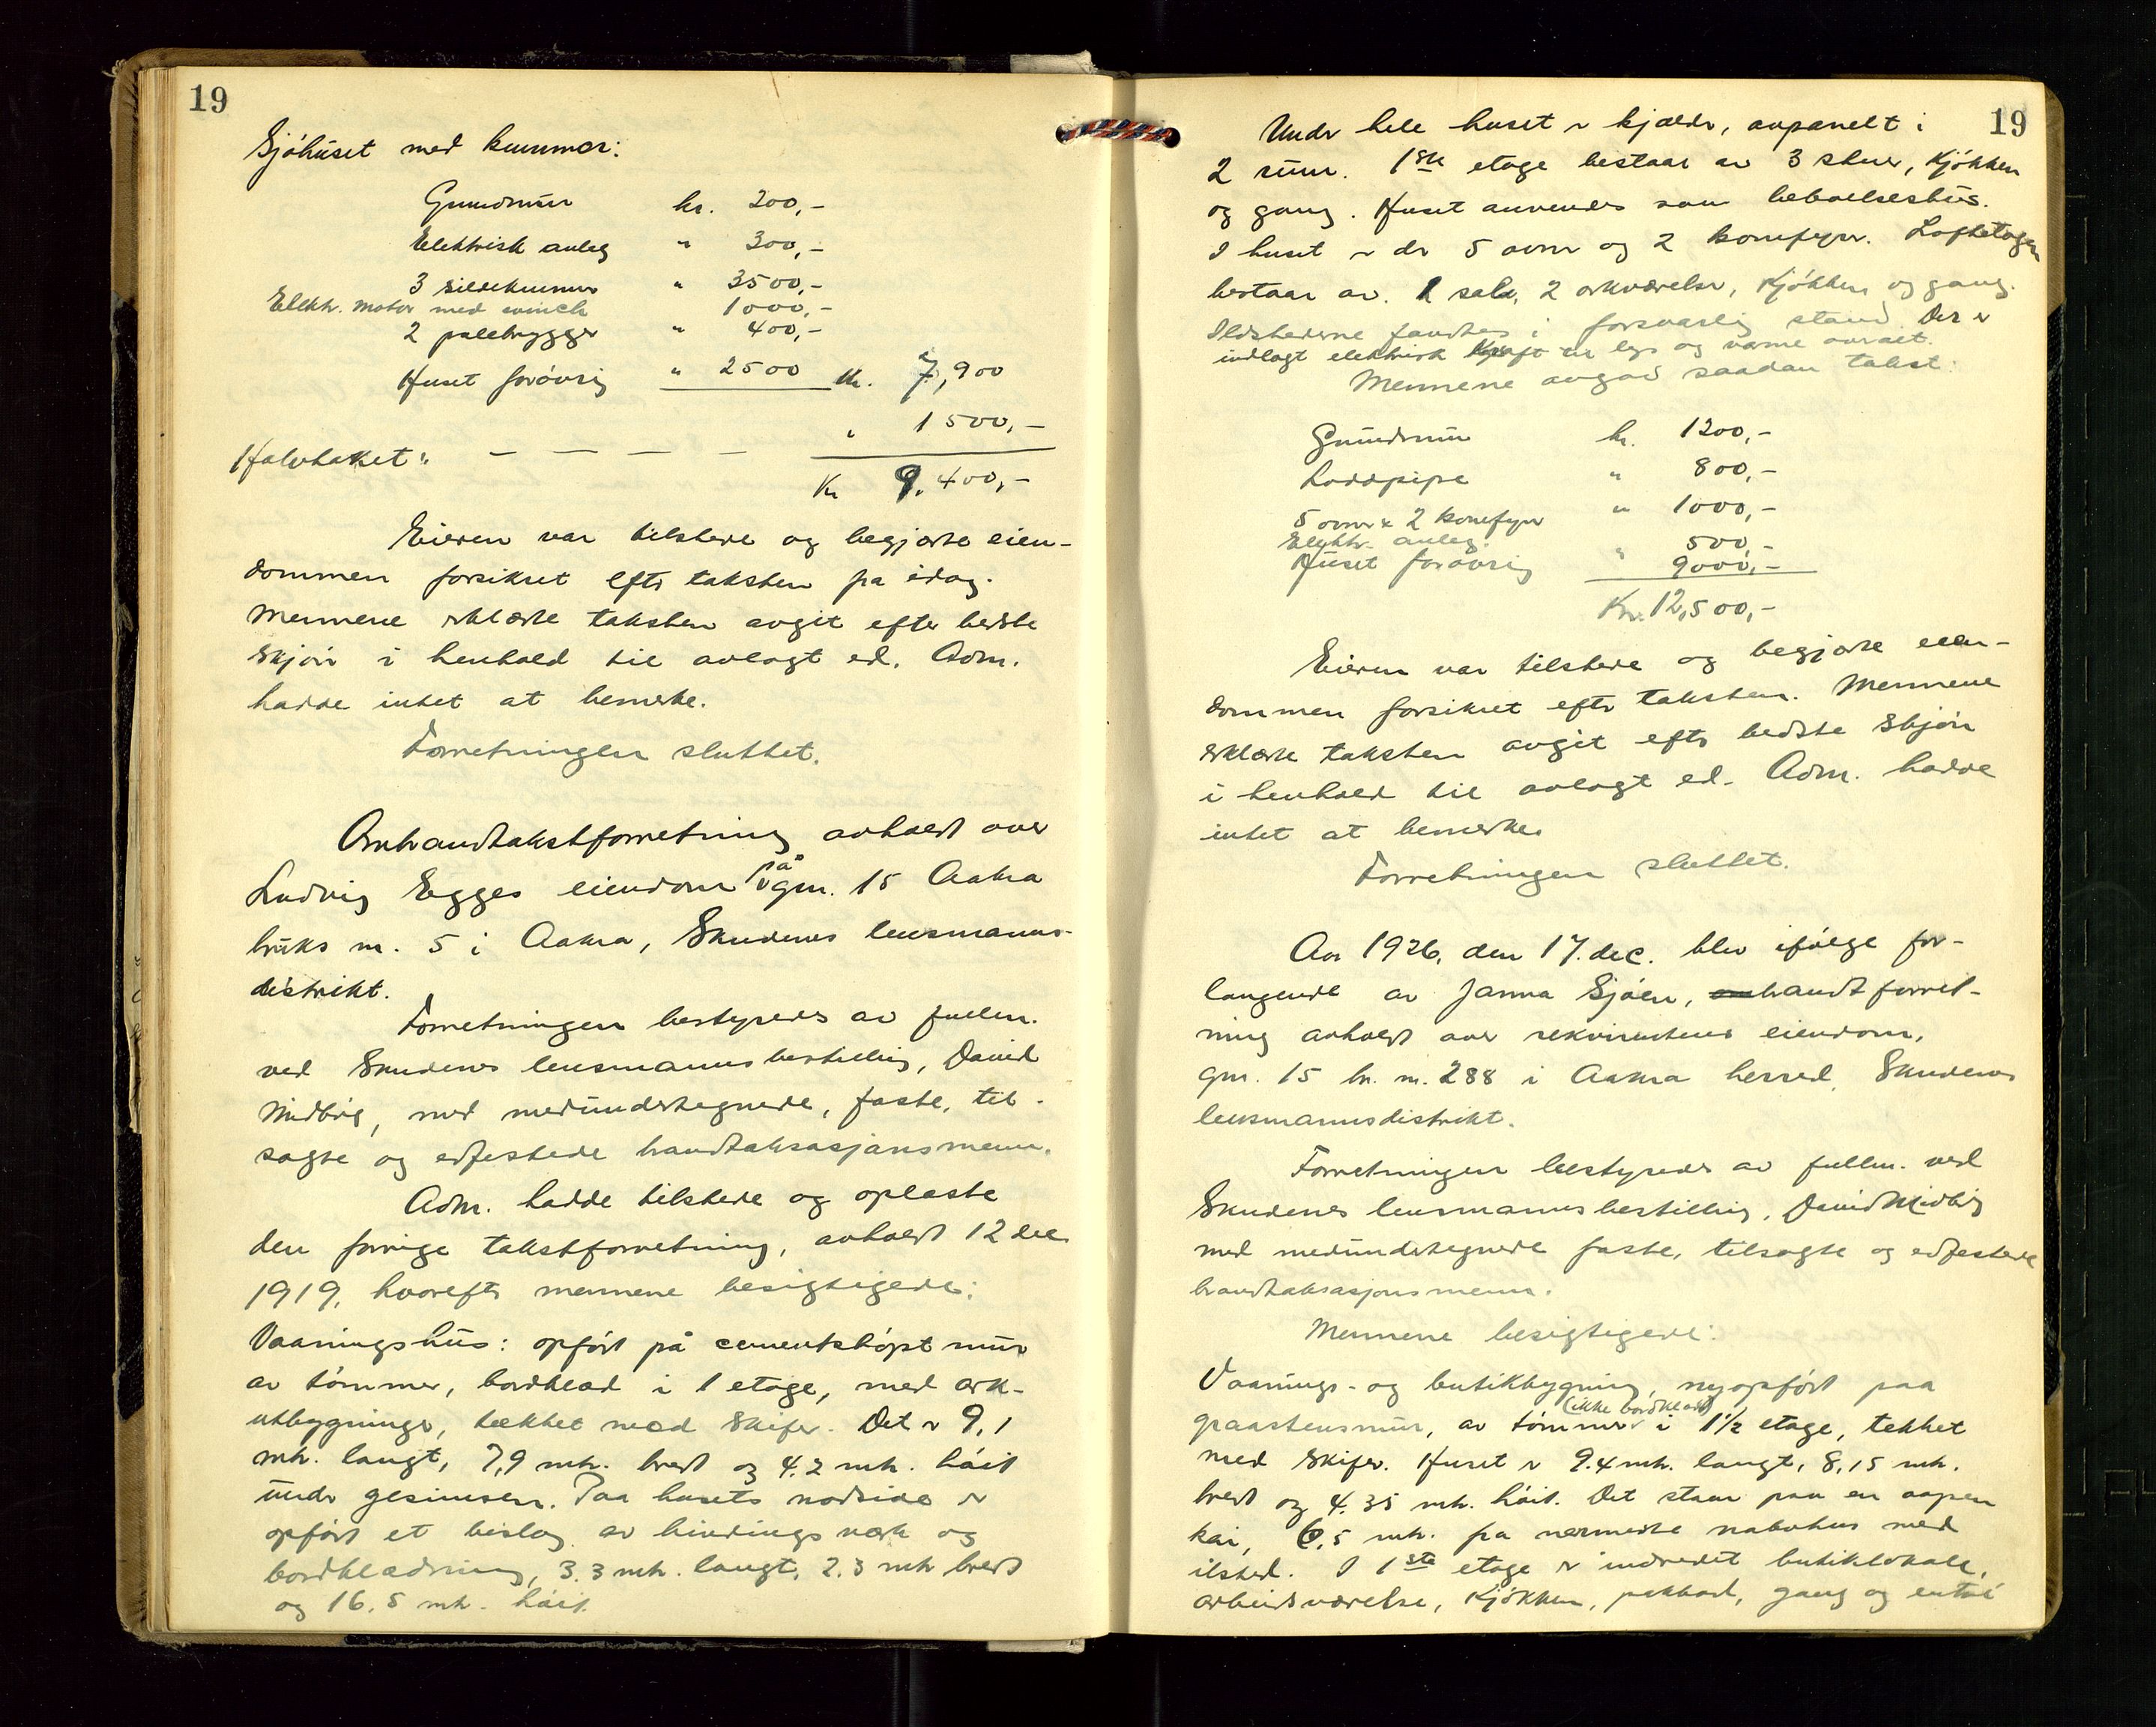 19
Sjöhuset med kummer:
Grundmur kr. 200,-
Elektrisk anleg " 300,-
3 sildekummer " 3500,-
Elektr. motor med winch 1000,-
2 pælebrygger " 400,-
Huset forövrig " 2500 Kr. 7,900
Halvtaket: — — — — " 1500,-
Kr 9.400,-
Eieren var tilstede og begjærte eien-
dommen forsikret efter taksten fra idag.
Mennene erklærte taksten avgit efter bedste
skjön i henhold til avlagt ed. Adm.
hadde intet at bemerke.
Forretningen sluttet.
Ombrandtakstforretning avholdt over
Ludvig Egges eiendom på gnr. 15 Aakra
bruks nr. 5 i Aakra, Skudenes lensmanns-
distrikt.
Forretningen bestyredes av fullm.
ved Skudenes lensmannsbestilling, David
Midbög, med medundertegnede, faste, til-
sagte og edfestede brandtaksasjonsmenn.
Adm. hadde tilstede og oplæste
den forrige takstforretning, avholdt 12 dec
1919, hvorefter mennene besigtigede:
Vaaningshus: opfört på cementstöpt mur
av tömmer, bordklæd i 1 etage, med ark-
utbygninger, tækket med skifer. Det er 9,1
mtr. langt, 7,9 mtr. bredt og 4.2 mtr. höit
under gesimsen. Paa husets nordside er
opfört et bislag av bindingsverk og
bordklædning, 3.3 mtr. langt, 2.3 mtr bredt
og 16.5 mtr. höit.
19
Under hele huset er kjælder, avpanelt i
2 rum. 1ste etage bestaar av 3 stuer, kjökken
og gang. Huset anvendes som beboelseshus.
I huset er der 5 ovner og 2 komfyrer. Loftetagen
bestaar av 1 sal, 2 arkværelser, kjökken og gang.
Ildstederne fandtes i forsvarlig stand. Der er
indlagt elektrisk kraft til lys og varme overalt.
Mennene avgav saadan takst:
Grundmur kr. 1200,-
Loddpipe " 800,-
5 ovner & 2 komfyrer " 1000,-
Elektr. anleg. 500,-
Huset forövrig " 9000,-
Kr. 12,500,-
Eieren var tilstede og begjærte eien-
dommen forsikret efter taksten. Mennene
erklærte taksten avgit efter bedste skjön
i henhold til avlagt ed. Adm. hadde
intet at bemerke.
Forretningen sluttet.
Aar 1926, den 17. dec. blev ifölge for-
langende av Janna Sjöen, brandtforret-
ning avholdt over rekvirentens eiendom,
gnr. 15 br. nr. 288 i Aakra herred, Skudenes
lensmannsdistrikt.
Forretningen bestyredes av fullm. ved
Skudenes lensmannsbestilling, David Midbög
med medundertegnede faste, tilsagte og edfestede
brandtaksasjonsmenn.
Mennene besigtigede:
Vaanings- og butikbygning, nyopfört paa
(ikke bordklædt)
graastensmur, av tömmer i 1½ etage, tekket
med skifer. Huset er 9.4 mtr. langt, 8,15 mtr.
bredt og 4.35 mtr. höit. Det staar paa en aapen
kai, 6,5 mtr. fra nærmeste nabohus med
ilsted. I 1ste etage er indredet butiklokale,
arbeidsværelse, kjökken, gang og entré